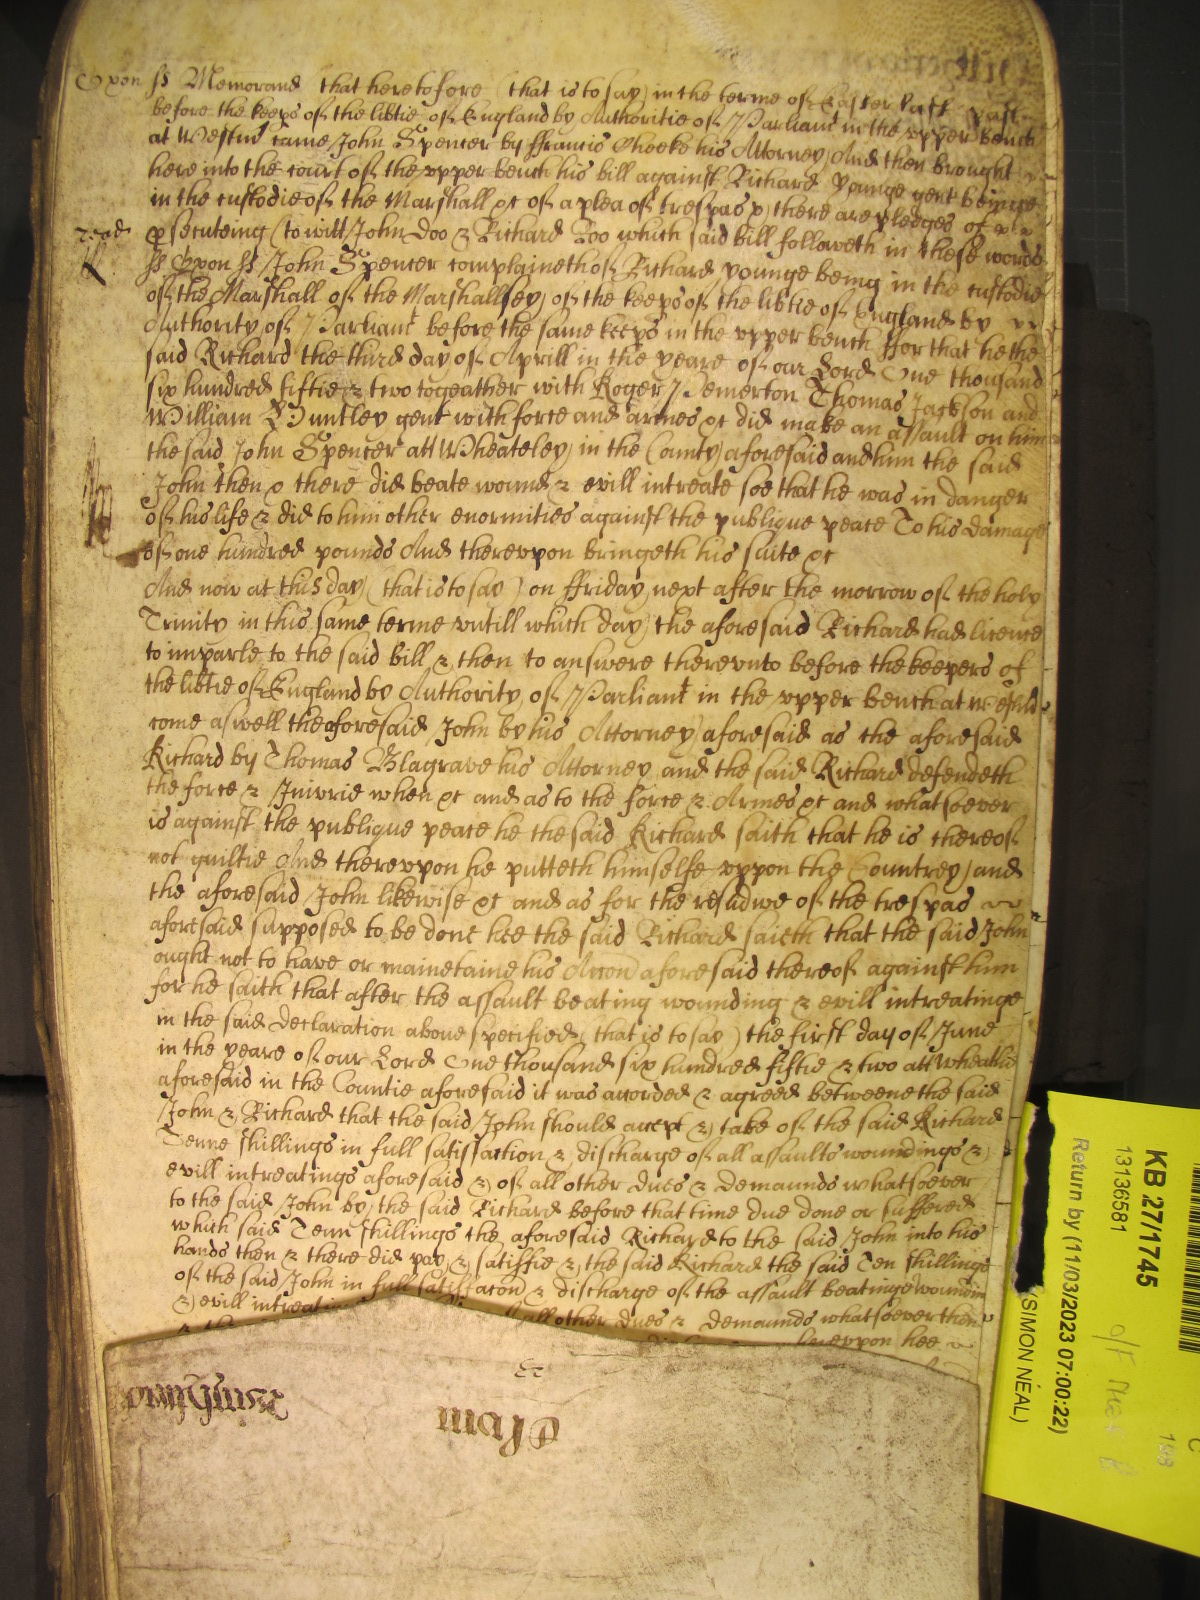 Oxon ss Memorand that heretofore (that is to say) in the terme of Easter last past
before the keeps of the libtie of England by Authoritie of Parliamt in the vpper bench
at Westm came John Spencer by ffrancis Cheeke his Attorney And then brought
here into the court of the vpper bench his bill against Richard Younge gent beinge
in the custodie of the Marshall &c of a plea of trespas & there are pledges of
psecuteing (to witt) John Doo & Richard Roo which said bill followeth in these words
ss Oxon ss John Spencer complaineth of Richard younge being in the custodie
of the Marshall of the Marshallsey of the keeps of the libtie of England by
Authority of Parliamt before the same keeps in the vpper bench ffor that he the
said Richard the third day of Aprill in the yeare of our Lord One thousand
six hundred fiftie & two togeather with Roger Pemerton Thomas Jackson and
William Huntley gent with force and armes &c did make an assault on him
the said John Spencer att Wheateley in the County aforesaid and him the said
John then & there did beate wound & evill intreate soe that he was in danger
of his life & did to him other enormities against the publique peace To his damage
of one hundred pounds And therevpon bringeth his suite &c
And now at this day (that is to say) on ffriday next after the morrow of the holy
Trinity in this same terme vntill which day the aforesaid Richard had licence
to imparle to the said bill & then to answere therevnto before the keepers of
the libtie of England by Authority of Parliamt in the vpper bench at Westm
come aswell the aforesaid John by his Attorney aforesaid as the aforesaid
Richard by Thomas Blagrave his Attorney and the said Richard defendeth
the force & Iniurie when &c and as to the force & Armes &c and whatsoever
is against the publique peace he the said Richard saith that he is thereof
not guiltie And therevpon he putteth himselfe vppon the Countrey and
the aforesaid John likewise &c and as for the residwe of the trespas
aforesaid supposed to be done hee the said Richard saieth that the said John
ought not to have or maintaine his Accon aforesaid thereof against him
for he saith that after the assault beating wounding & evill intreatinge
in the said declaration aboue specified (that is to say) the first day of June
in the yeare of our Lord One thousand six hundred fiftie & two att Wheatlie
aforesaid in the Countie aforesaid it was accorded & agreed betweene the said
John & Richard that the said John should accept & take of the said Richard
Tenne shillings in full satisfaction & discharge of all assaults woundings &
evill intreatings aforesaid & of all other dues & demaunds whatsoever
to the said John by the said Richard before that time due done or suffered
which said Tenn shillings the aforesaid Richard to the said John into his
hands then & there did pay & satisfie & the said Richard the said Ten shillings
of the said John in full satisfacon & discharge of the assault beatinge woundin
& evill intreatin all other dues & demaunds whatsoever then
herevpon hee
KB 27/1745
13136581
Return by (11/03/2023 07:00:22)
(SIMON NEAL)